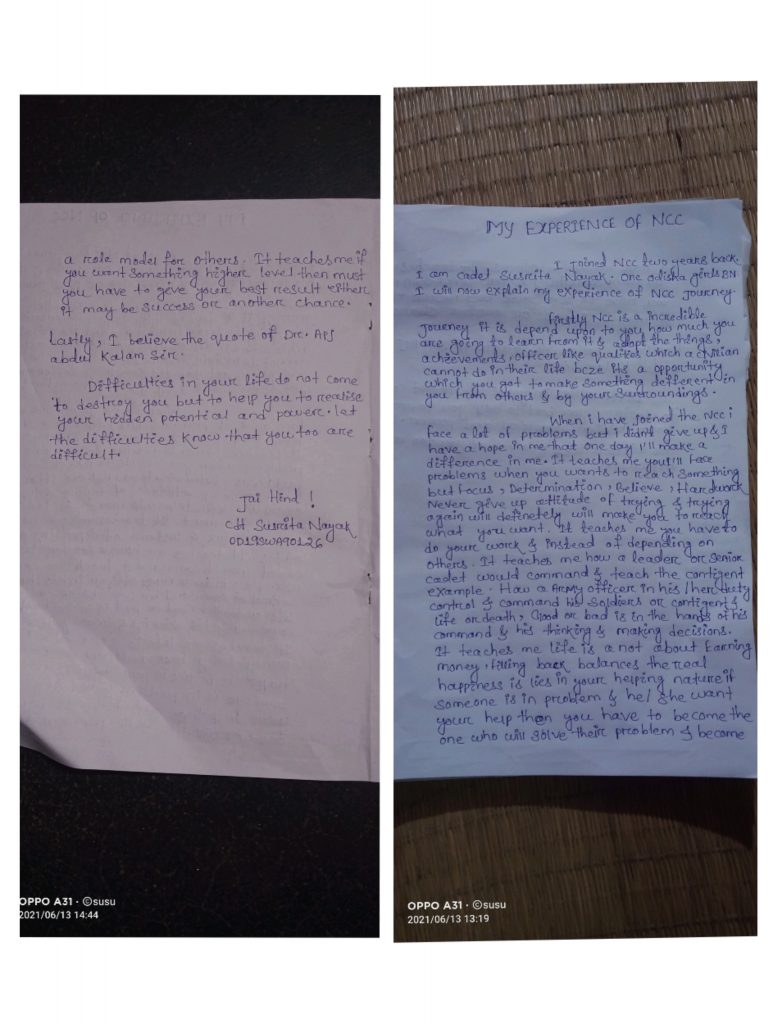 MY EXPERIENCE OF NCC
I joined NCC two years back.
I am cadet Susrita Nayak. One odisha girls BN
I will now explain my experience of NCC journey.
Firstly NCC is a incredible
journey it is depend upon to you how much you
are going to learn from it & adopt the things,
achievements, officer like qualities which a civilian
cannot do in their life bcze its a opportunity
which you got to make something defferent in
you from others & by your surroundings.
When i have joined the NCC i
face a lot of problems but i didn't give up & I
have a hope in me that one day i'll make a
difference in me. It teaches me you'll face
problems when you wants to reach something
but focus, Determination, Believe, Hardwork
Never give up attitude of trying & trying
again will definetely will make you to reach
what you want. It teaches me you have to
do your work & instead of depending on
others. It teaches me how a leader or senior
cadet would command & teach the contigent
example. How a Army officer in his/her duty
control & command his soldiers or contigent &
life or death, Good or bad is in the hands of his
command & his thinking & making decisions.
It teaches me life is a not about Earning
money, filling back balances the real
happiness is lies in your helping nature if
someone is in problem & he/she want
your help then you have to become the
one who will solve their problem & become
OPPO A31 · ©susu
2021/06/13 13:19
a role model for others. It teaches me if
you want something higher level then must
you have to give your best result either
it may be success or another chance.
Lastly, I believe the quote of Dr. APJ
abdul Kalam Sir.
Difficulties in your life do not come
to destroy you but to help you to realise
your hidden potential and power. let
the difficulties know that you too are
difficult.
Jai Hind !
Cdt Susrita Nayak
OD19SWA90126
OPPO A31 · ©susu
2021/06/13 14:44